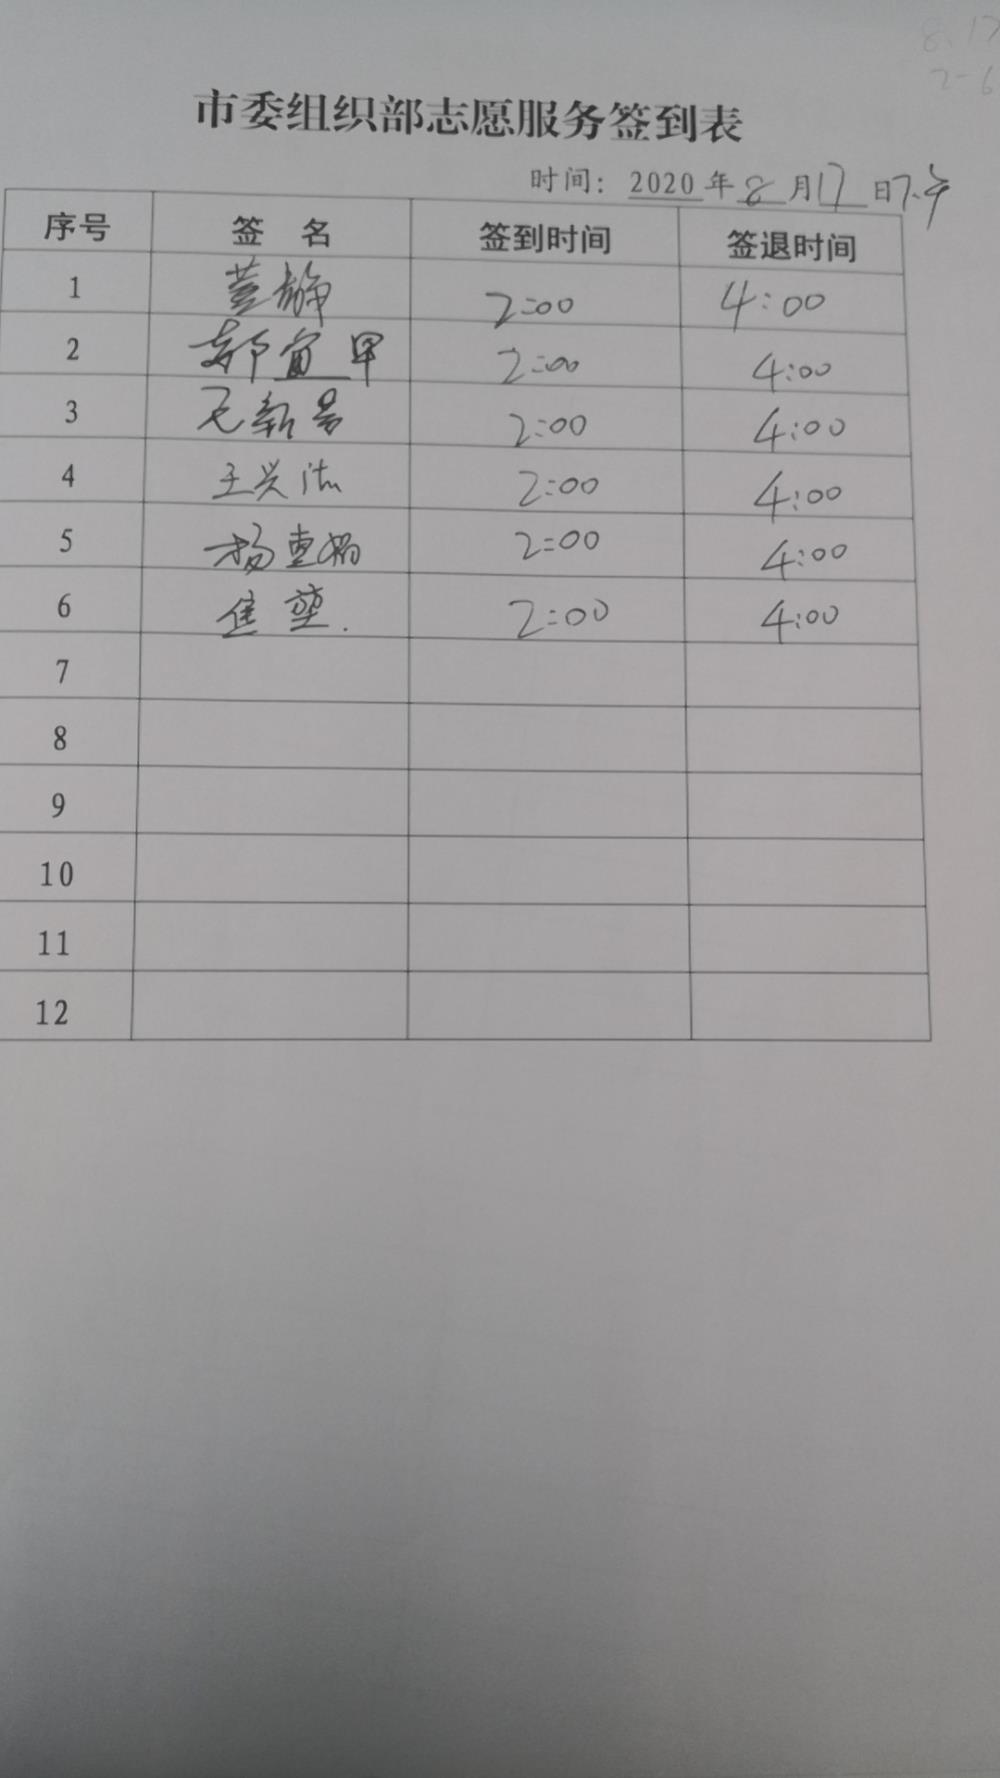 8.17
2-6
市委组织部志愿服务签到表
时间：2020年8月17日下午
序号 签 名 签到时间 签退时间
1 黄静 2:00 4:00
2 郝宜早 2:00 4:00
3 2:00 4:00
4 王兴浩 2:00 4:00
5 杨惠娟 2:00 4:00
6 焦堃. 2:00 4:00
7
8
9
10
11
12